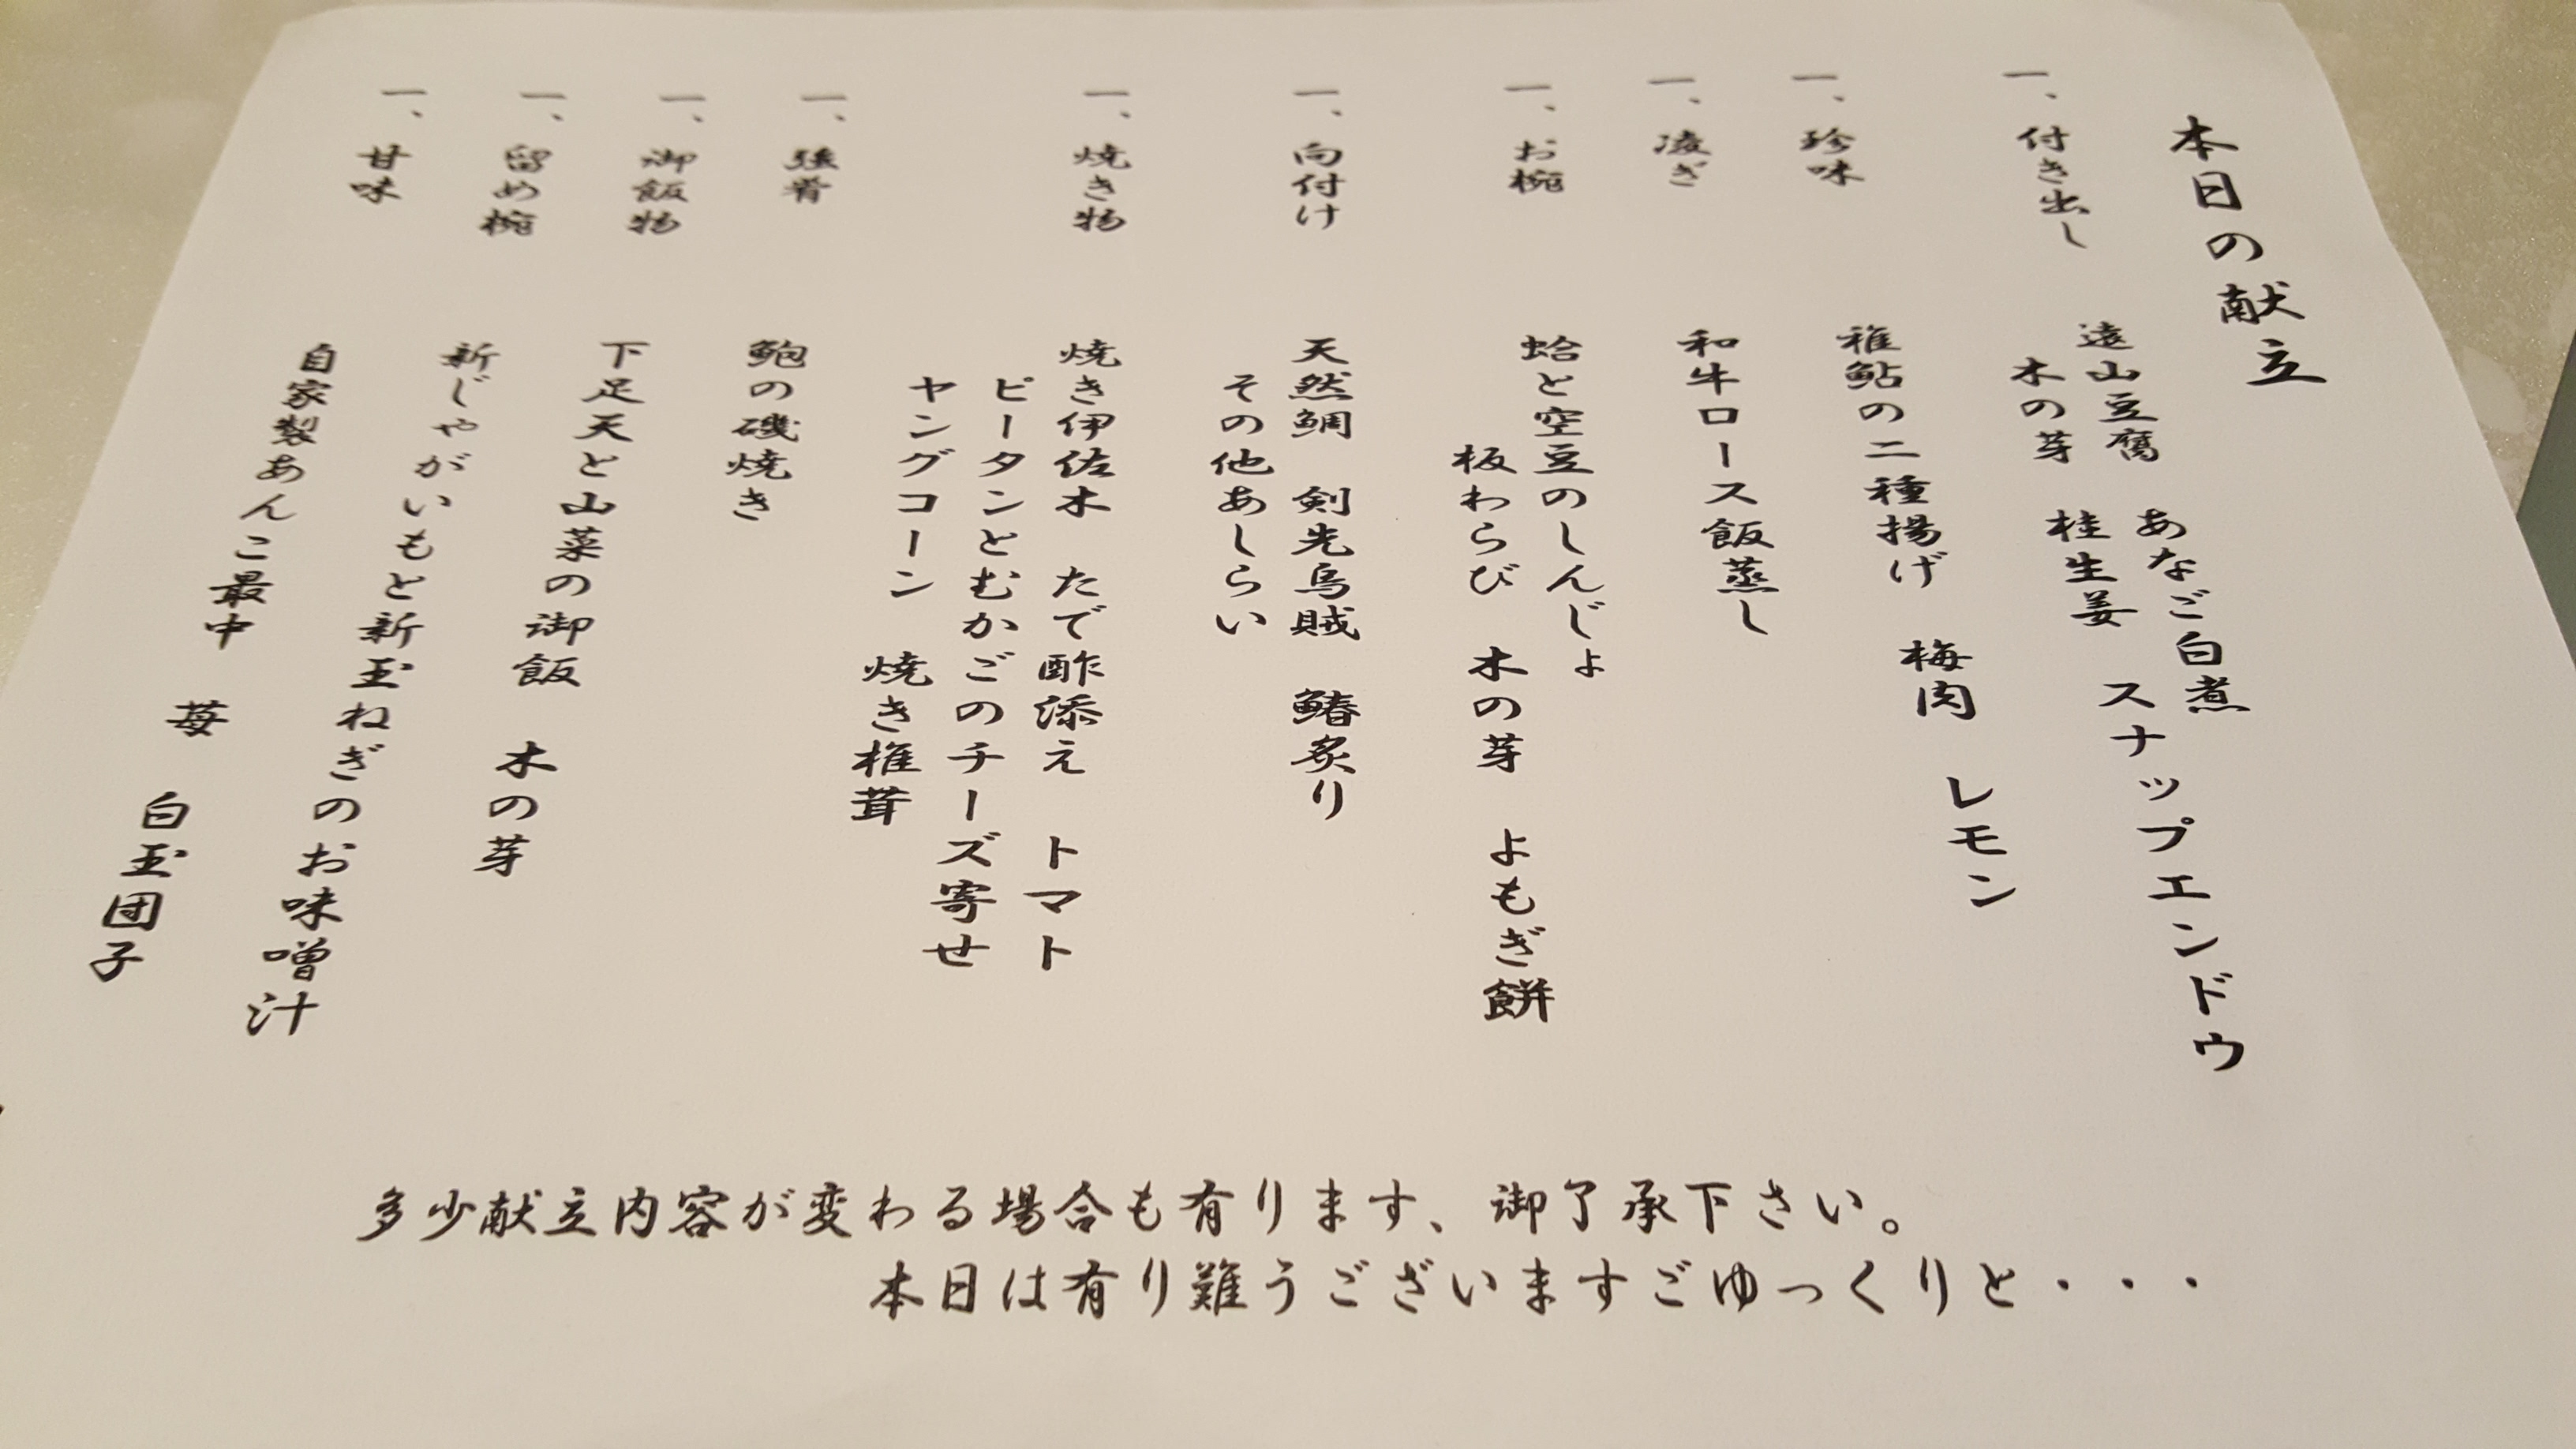 本日の献立
一、付き出し 遠山豆腐 あなご白煮
木の芽 桂生姜 スナップエンドウ
一、珍味 稚鮎の二種揚げ 梅肉 レモン
一、凌ぎ 和牛ロース飯蒸し
一、お椀 蛤と空豆のしんじょ
板わらび 木の芽 よもぎ餅
一、向付け 天然鯛 剣先烏賊 鰆炙り
その他あしらい
一、焼き物 焼き伊佐木 たで酢添え トマト
ピータンとむかごのチーズ寄せ
ヤングコーン 焼き椎茸
一、強肴 鮑の磯焼き
一、御飯物 下足天と山菜の御飯 木の芽
一、留め椀 新じゃがいもと新玉ねぎのお味噌汁
一、甘味 自家製あんこ最中 苺 白玉団子
多少献立内容が変わる場合も有ります、御了承下さい。
本日は有り難うございますごゆっくりと・・・